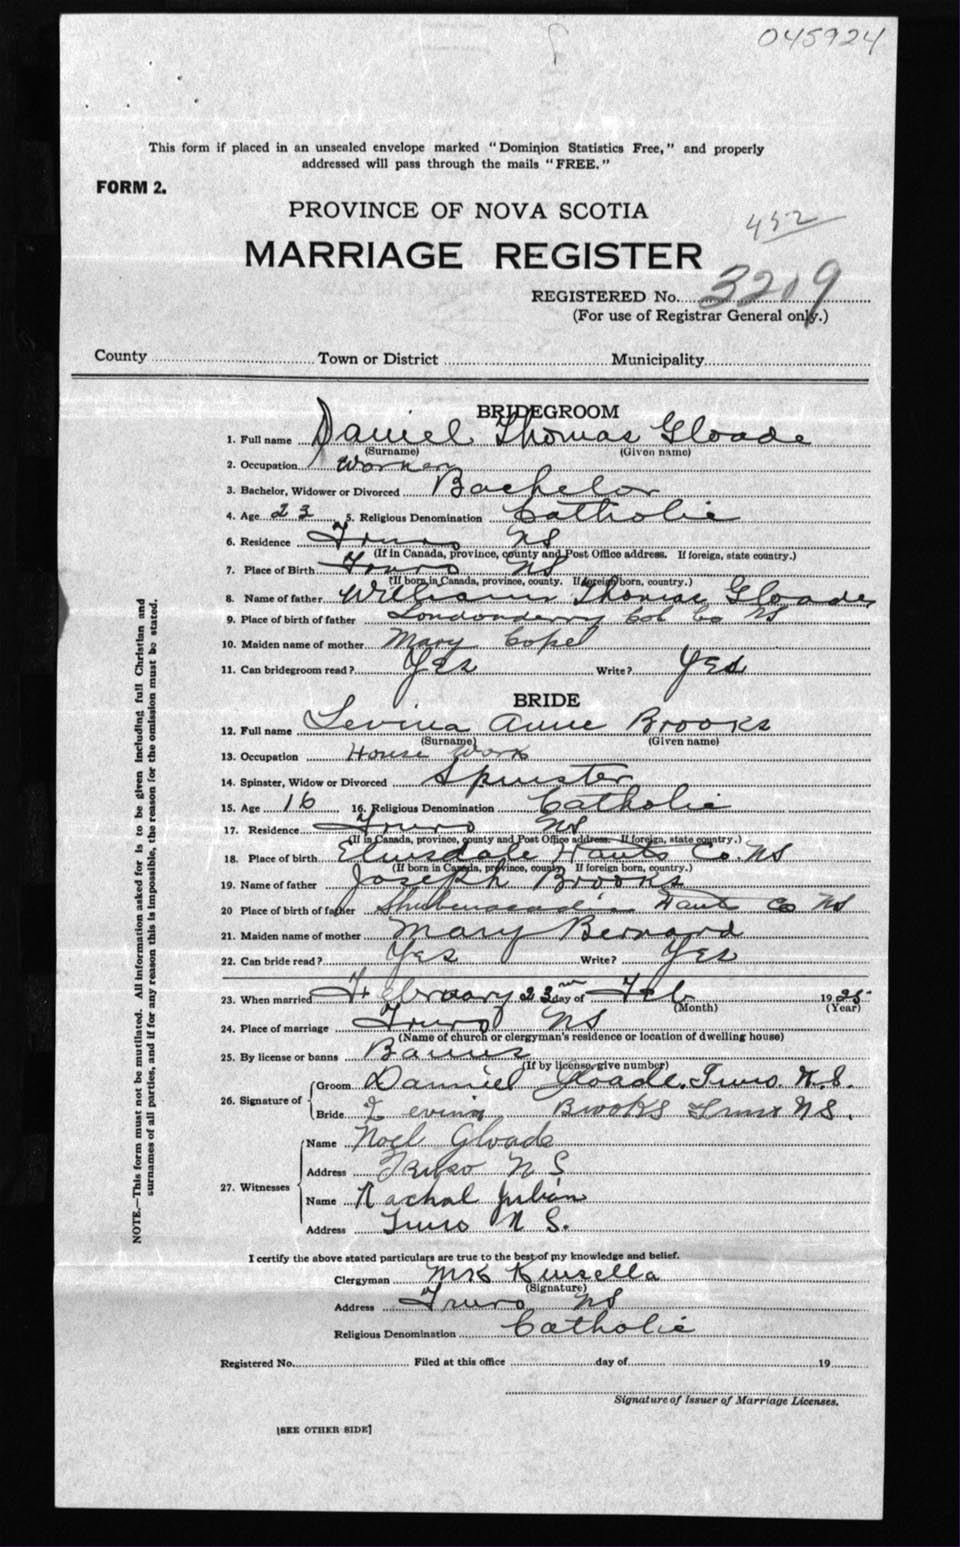 045924
This form if placed in an unsealed envelope marked "Dominion Statistics Free," and properly
addressed will pass through the mails "FREE."
FORM 2.
PROVINCE OF NOVA SCOTIA
452
MARRIAGE REGISTER
REGISTERED No. 3209
(For use of Registrar General only.)
County Town or District Municipality
BRIDEGROOM
1. Full name Daniel Thomas Gloade
(Surname) (Given name)
2. Occupation Worker
3. Bachelor, Widower or Divorced Bachelor
4. Age 23 5. Religious Denomination Catholic
6. Residence Truro NS
(If in Canada, province, county and Post Office address. If foreign, state country.)
7. Place of Birth Truro NS
(If born in Canada, province, county. If foreign born, country.)
8. Name of father William Thomas Gloade
9. Place of birth of father Londonderry Col Co NS
10. Maiden name of mother Mary Copel
11. Can bridegroom read? Yes Write? Yes
BRIDE
12. Full name Levina Anne Brooks
(Surname) (Given name)
13. Occupation House Work
14. Spinster, Widow or Divorced Spinster
15. Age 16 16. Religious Denomination Catholic
17. Residence Truro NS
(If in Canada, province, county and Post Office address. If foreign, state country.)
18. Place of birth Elmsdale Hants Co. NS
(If born in Canada, province, county. If foreign born, country.)
19. Name of father Joseph Brooks
20 Place of birth of father Shubenacadie Hants Co NS
21. Maiden name of mother Mary Bernard
22. Can bride read? Yes Write? Yes
23. When married February 23 day of Feb 1925
(Month) (Year)
24. Place of marriage Truro NS
(Name of church or clergyman's residence or location of dwelling house)
25. By license or banns Banns
(If by license, give number)
26. Signature of Groom Danniel Gloade. Truro. N.S.
Bride Levina Brooks Truro NS.
27. Witnesses Name Noel Gloade
Address Truro N S
Name Rachal Julian
Address Truro N S.
I certify the above stated particulars are true to the best of my knowledge and belief.
Clergyman Kinsella
(Signature)
Address Truro NS
Religious Denomination Catholic
Registered No. Filed at this office day of 19
Signature of Issuer of Marriage Licenses.
[SEE OTHER SIDE]
NOTE.—This form must not be mutilated. All information asked for is to be given including full Christian and
surnames of all parties, and if for any reason this is impossible, the reason for the omission must be stated.